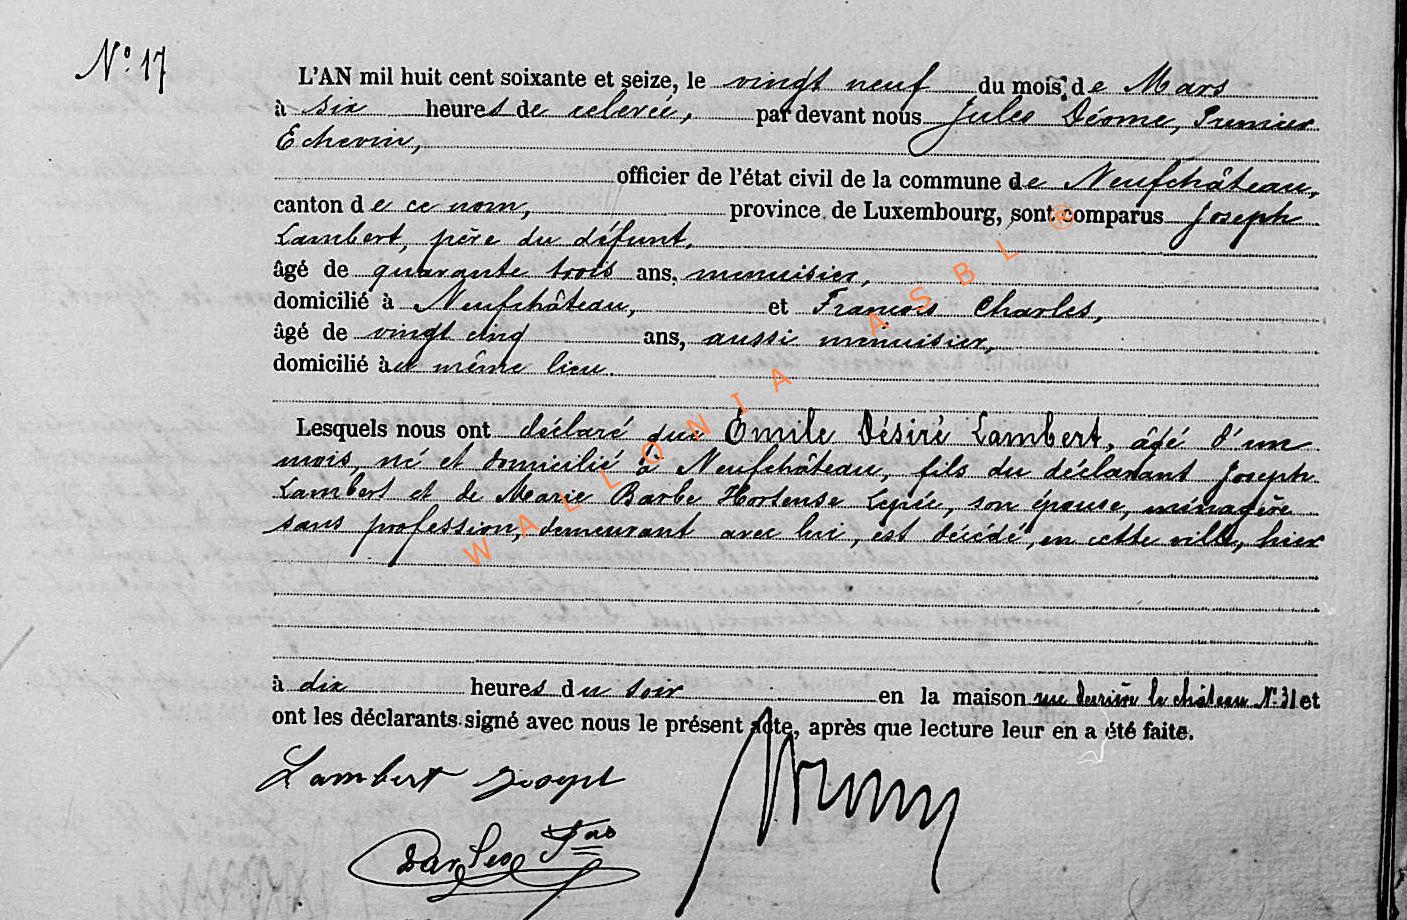 N° 17
L'AN mil huit cent soixante et seize, le vingt neuf du mois de Mars
à six heures de relevée, par devant nous Jules Déome, Premier
Echevin,
officier de l'état civil de la commune de Neufchâteau,
canton de ce nom, province de Luxembourg, sont comparus Joseph
Lambert, père du défunt,
âgé de quarante trois ans, menuisier,
domicilié à Neufchâteau, et François Charles,
âgé de vingt cinq ans, aussi menuisier,
domicilié au même lieu.
Lesquels nous ont déclaré que Émile Désiré Lambert, âgé d'un
mois, né et domicilié à Neufchâteau, fils du déclarant Joseph
Lambert et de Marie Barbe Hortense son épouse, ménagère
sans profession, demeurant avec lui, est décédé, en cette ville, hier
à dix heures du soir en la maison rue derrière le château N° 31 et
ont les déclarants signé avec nous le présent acte, après que lecture leur en a été faite.
Lambert Joseph
Charles Fois
WALLONIA ASBL ®